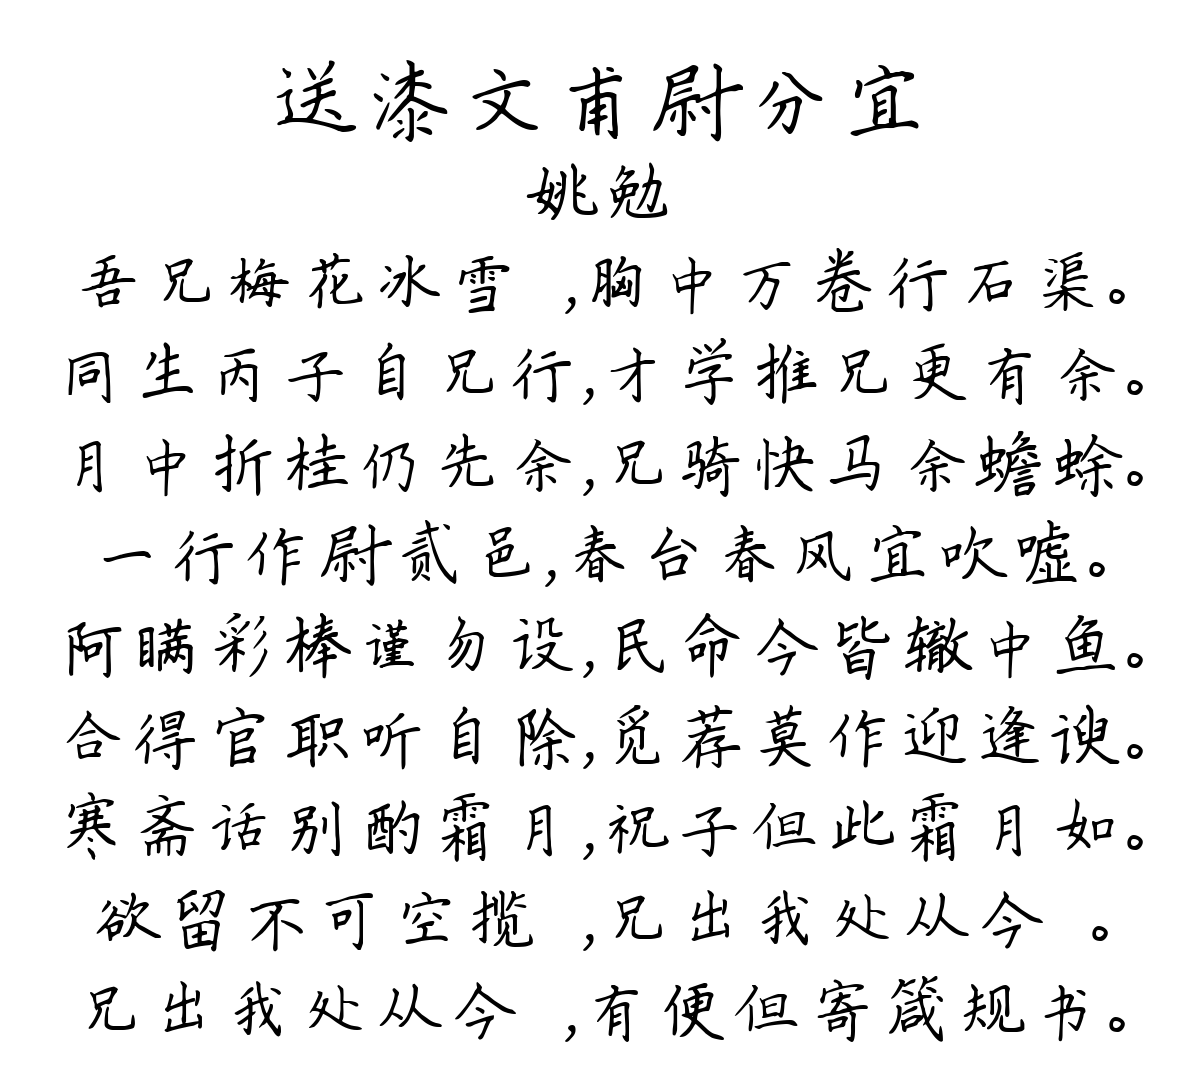 送漆文甫尉分宜
姚勉
吾兄梅花冰雪 ,胸中万卷行石渠。
同生丙子自兄行,才学推兄更有余。
月中折桂仍先余,兄骑快马余蟾蜍。
一行作尉贰邑,春台春风宜吹嘘。
阿瞒彩棒谨勿设,民命今皆辙中鱼。
合得官职听自除,觅荐莫作迎逢谀。
寒斋话别酌霜月,祝子但此霜月如。
欲留不可空揽 ,兄出我处从今 。
兄出我处从今 ,有便但寄箴规书。